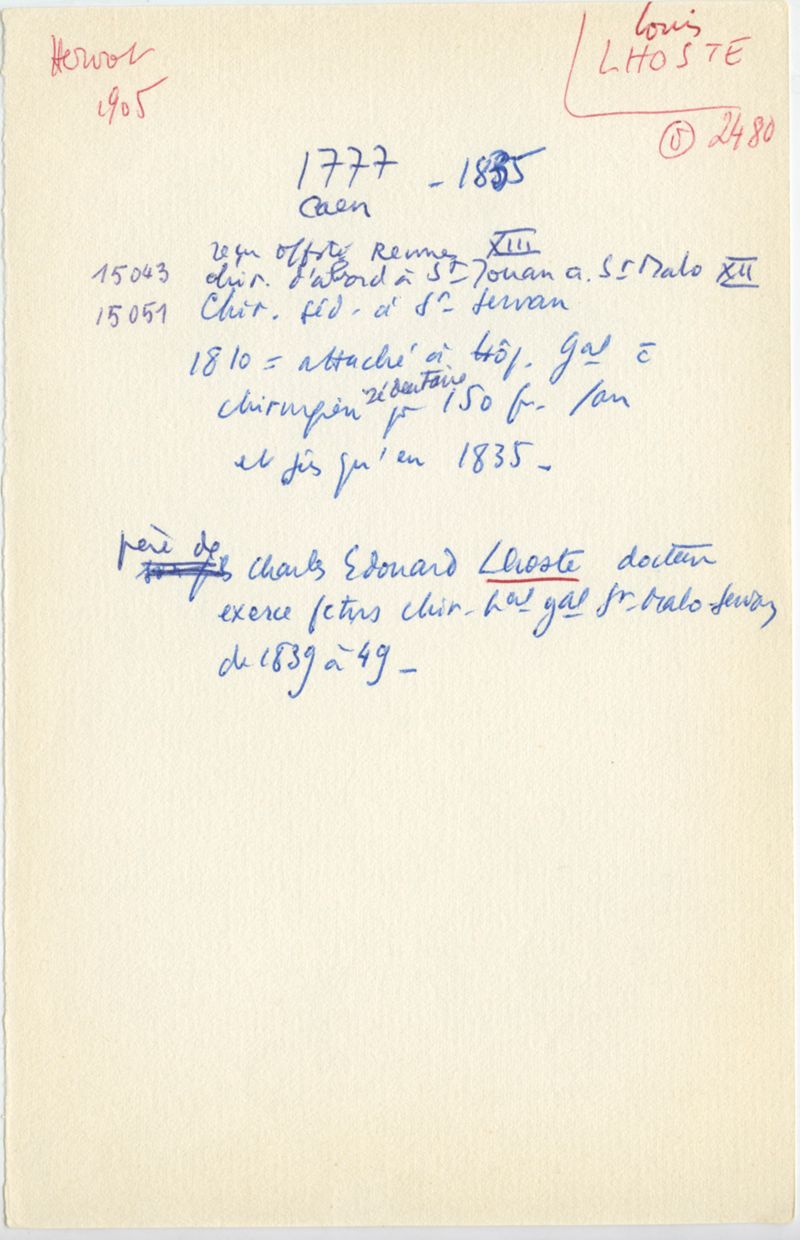 Hervot
1905
Louis
LHOSTE
2480
1777 - 1835
Caen
reçu off. Rennes XIII
15043 chir. d'abord à St Jouan a. St Malo XII
15051 Chir. séd. à St Servan
1810 = attaché à Hôp. Gal c̄
chirurgien sédentaire pr 150 fr. /an
et jus qu'en 1835 -
père de Charles Edouard Lhoste docteur
exerce fctns chir. hal gal St Malo-Servan
de 1839 à 49 -